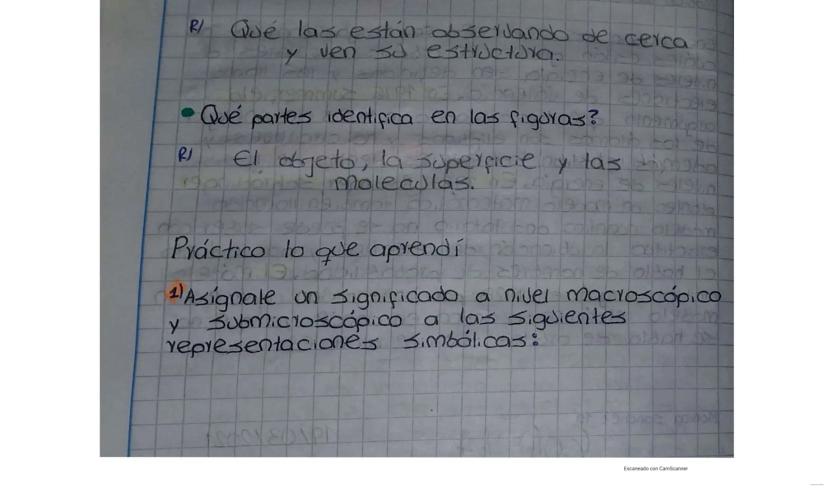 R/ Qué las están observando de cerca
y ven su estructura.
• Qué partes identifica en las figuras?
R/ El objeto, la superficie y las
moleculas.
Práctico lo que aprendí
1) Asígnale un significado a nivel macroscópico
y submicroscópico a las siguientes
representaciones simbólicas:
Escaneado con CamScanner